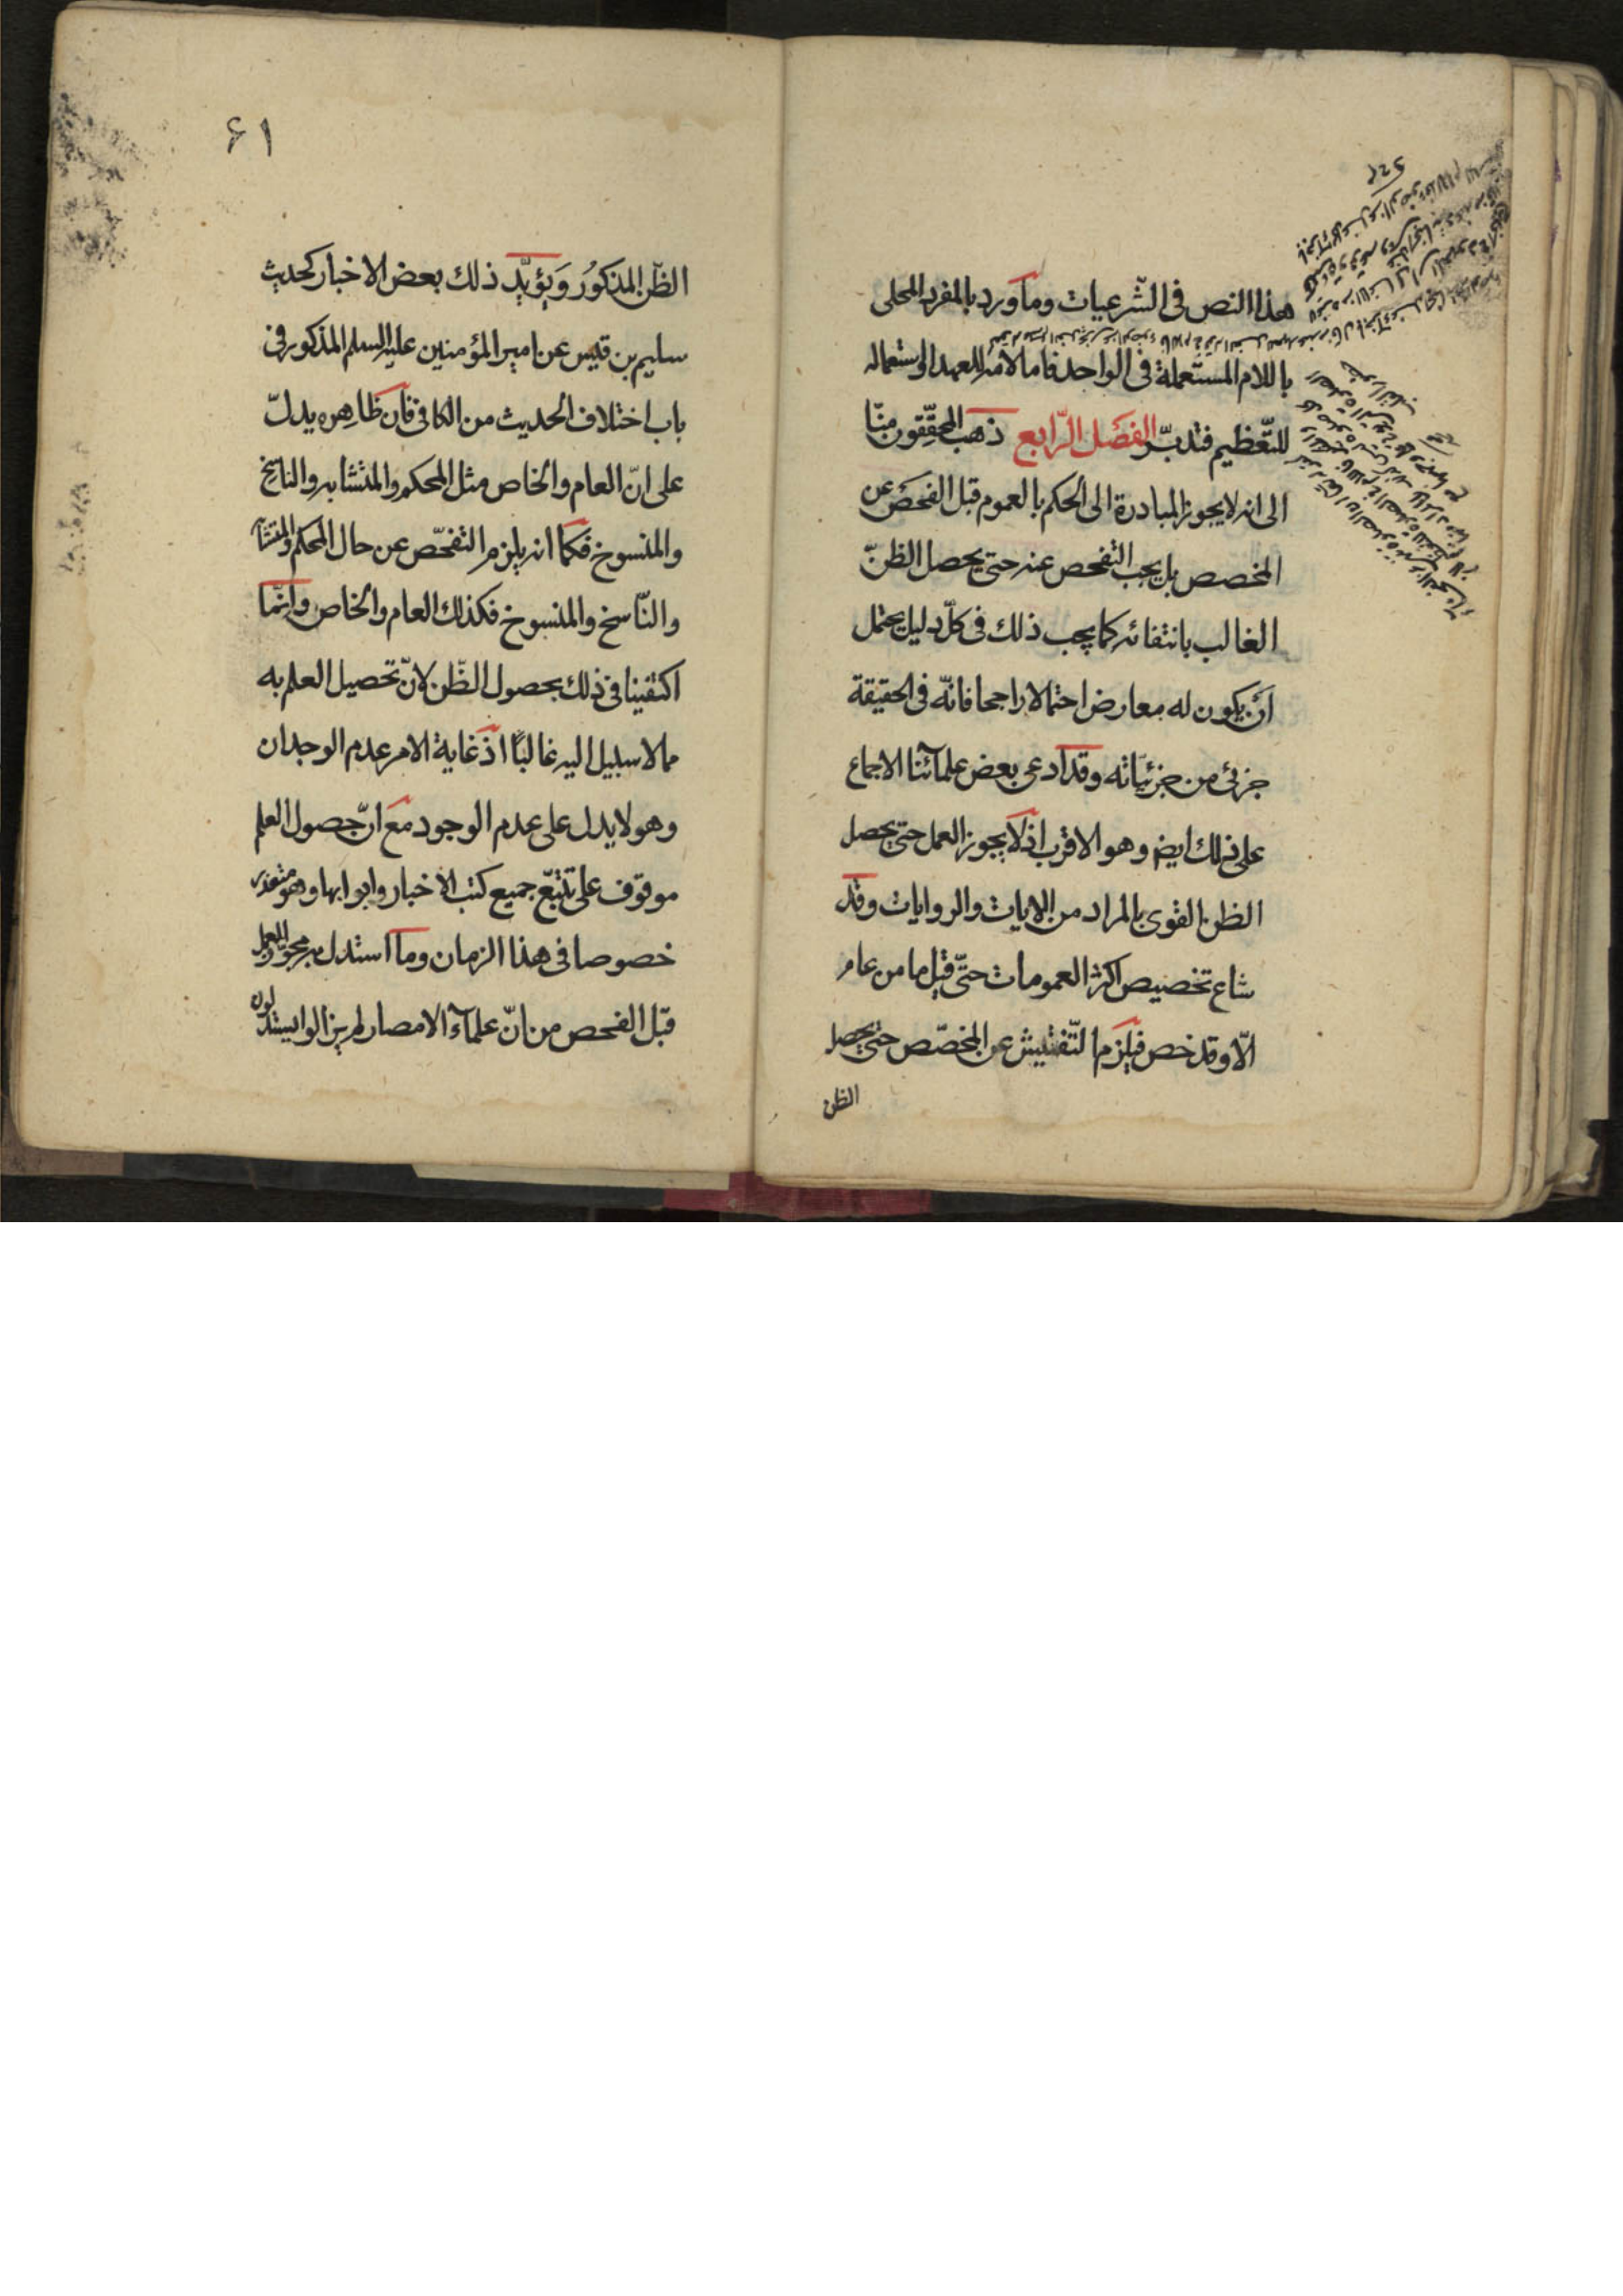 هذا النص فى الشّرعيات وما ورد بالمفرد المحلى
باللام المستعملة فى الواحد فاما لامه للعهد او استعماله
للتّعظيم فتدبّر الفصل الرّابع ذهب المحقّقون منّا
الى انه لا يجوز المبادرة الى الحكم بالعموم قبل الفحص عن
المخصص بل يجب التفحص عنه حتى يحصل الظنّ
الغالب بانتفائه كما يجب ذلك فى كلّ دليل يحتمل
ان يكون له معارض احتمالا راجحا فانّه فى الحقيقة
جزئى من جزئيّاته وقد ادعى بعض علمآئنا الاجماع
على ذلك ايضم وهو الاقرب اذ لا يجوز العمل حتى يحصل
الظن القوى بالمراد من الايات والروايات وقد
شاع تخصيص اكثر العمومات حتّى قيل ما من عام
الّا وقد خص فيلزم التّفتيش عن المخصّص حتى يحصل
الظن
۶۱
الظّن المذكور ويؤيّد ذلك بعض الاخبار كحديث
سليم بن قيس عن امير المؤمنين عليه السلم المذكور فى
باب اختلاف الحديث من الكافى فان ظاهره يدلّ
على انّ العام والخاص مثل المحكم والمتشابه والناسخ
والمنسوخ فكما انه يلزم التفحّص عن حال المحكم والمتشابه
والنّاسخ والمنسوخ فكذلك العام والخاص وانّما
اكتفينا فى ذلك بحصول الظّن لانّ تحصيل العلم به
مما لا سبيل اليه غالبًا اذ غاية الامر عدم الوجدان
وهو لا يدل على عدم الوجود مع انّ حصول العلم
موقوف على تتبّع جميع كتب الاخبار وابوابها وهو متعذر
خصوصا فى هذا الزمان وما استدل به مجوّز العمل
قبل الفحص من انّ علمآء الامصار لم يزالوا يستدلون